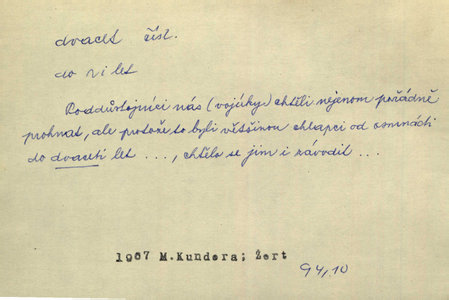 dvacet čísl.
do 21 let
Poddůstojníci nás (vojáky) chtěli nejenom pořádně
prohnat, ale protože to byli většinou chlapci od osmnácti
do dvaceti let ..., chtělo se jim i závodit ...
1967 M.Kundera; Žert
94,10